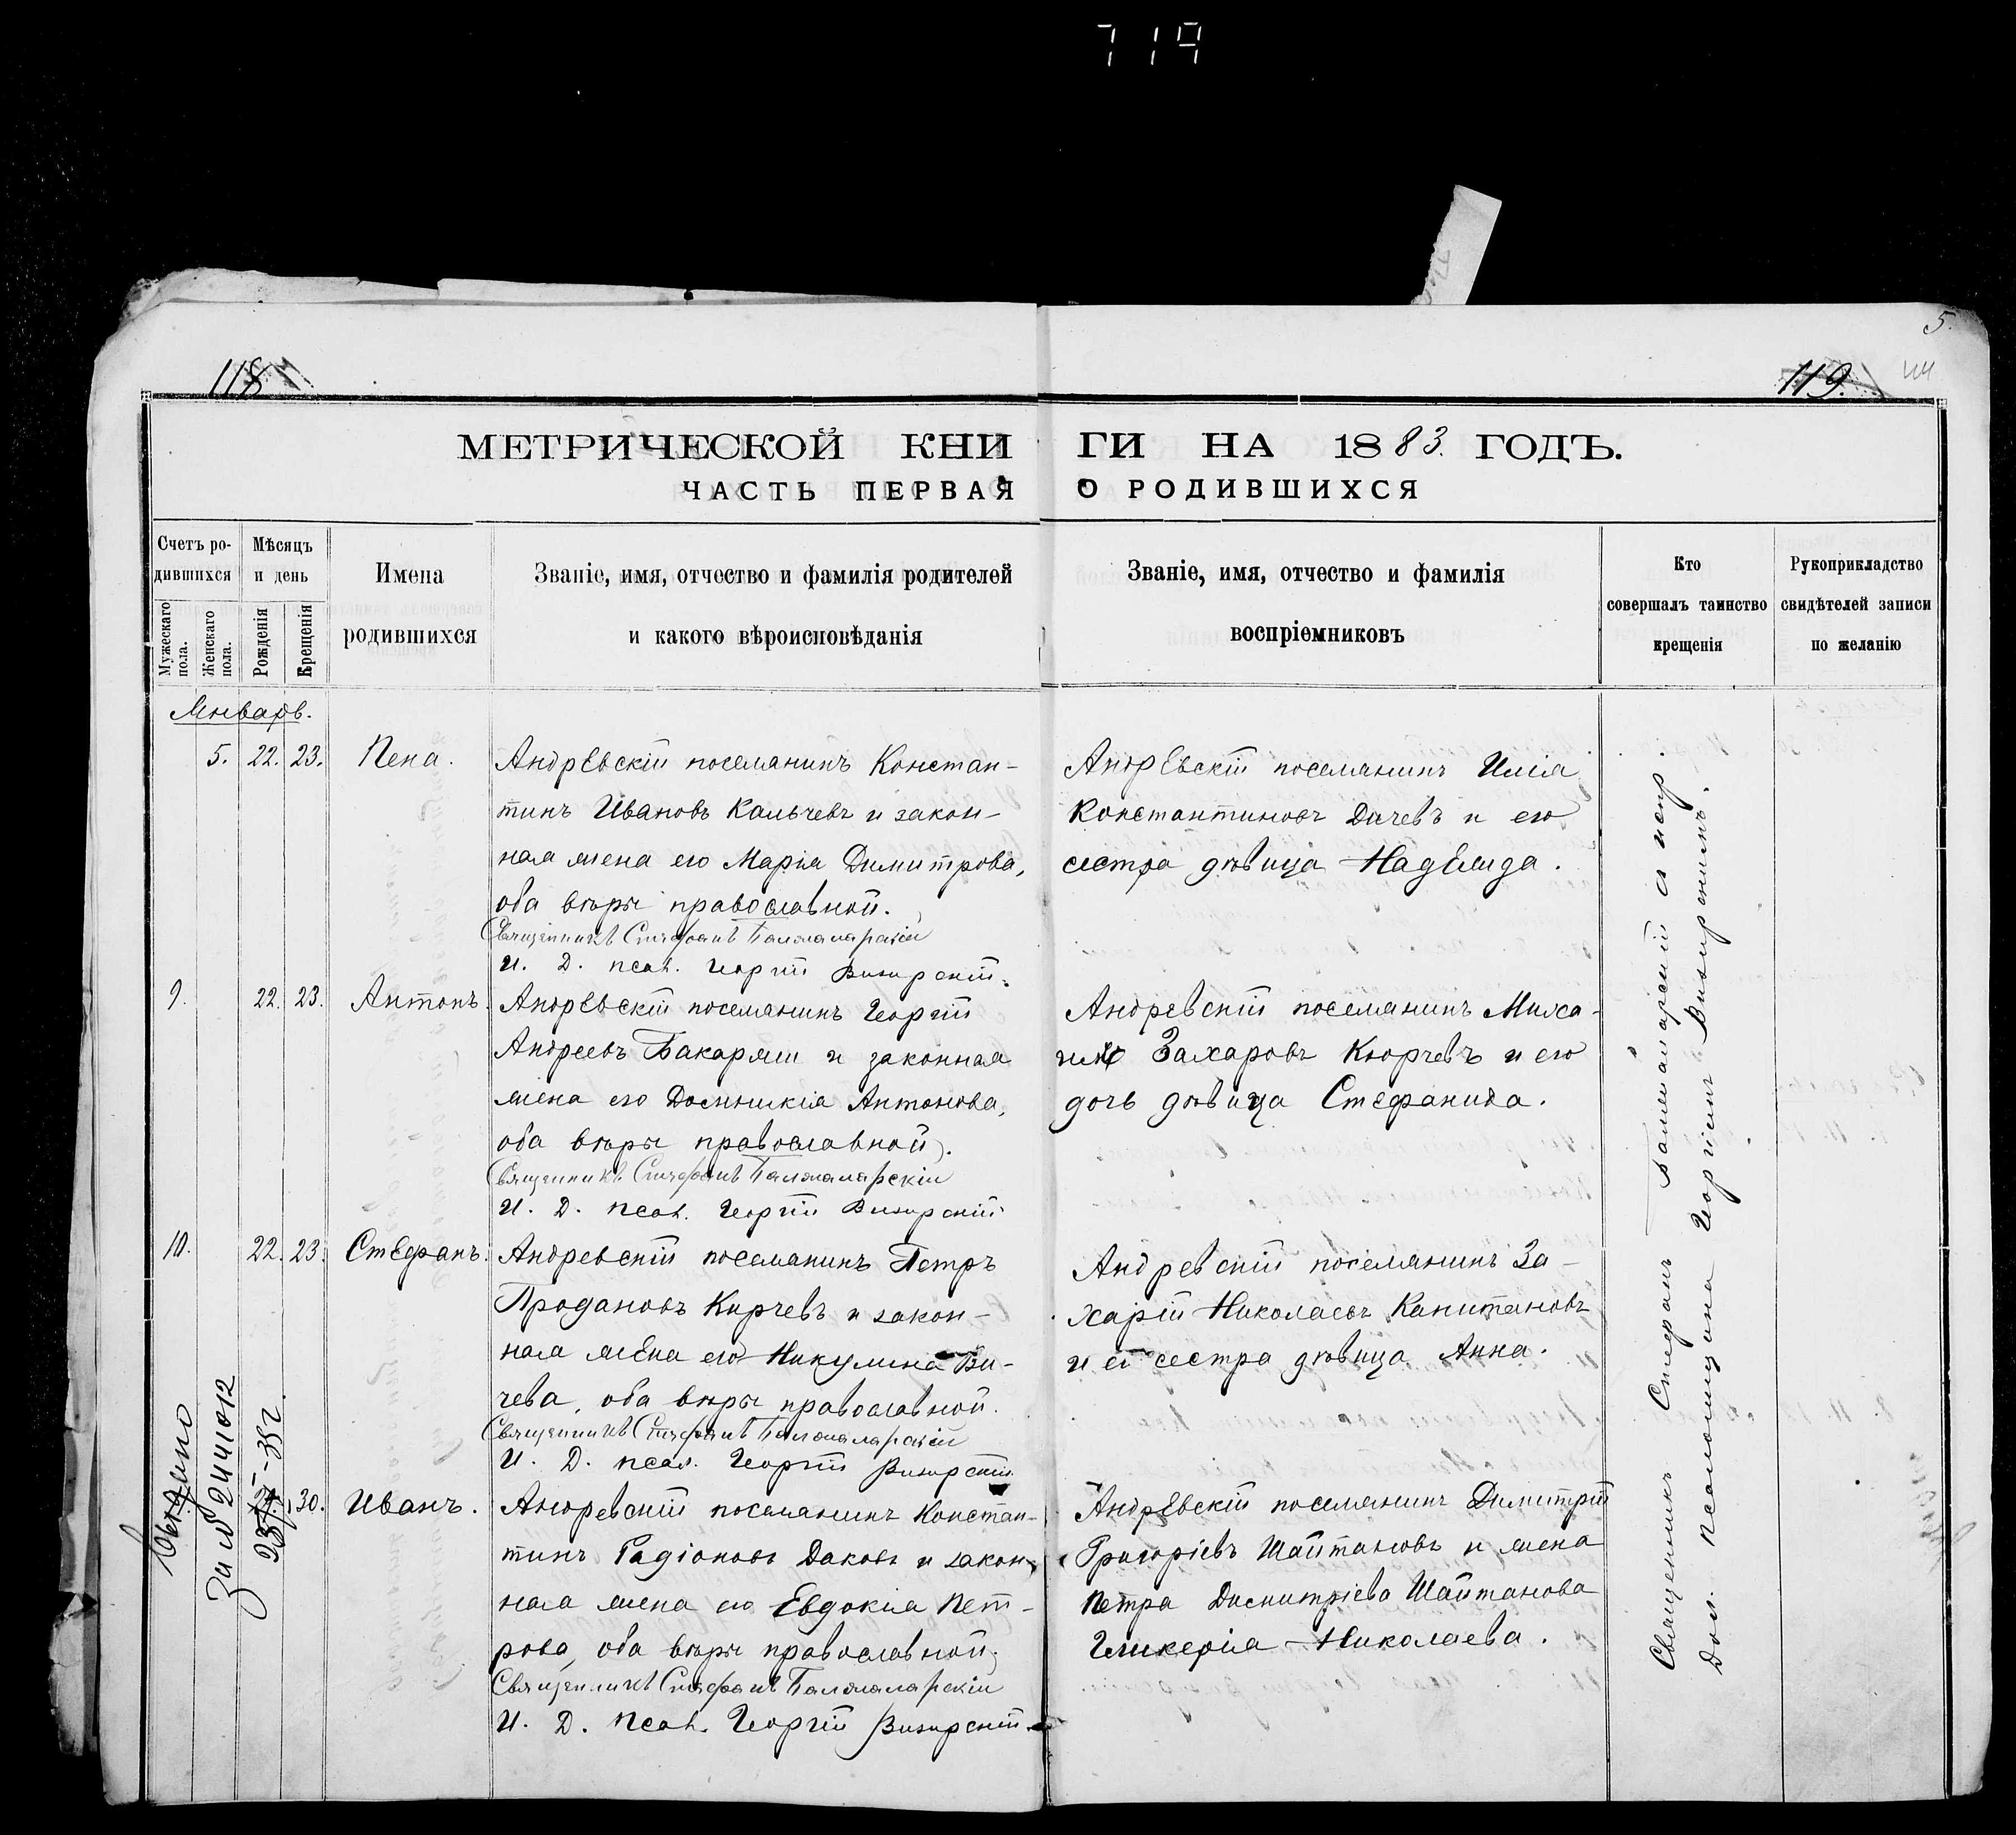 719
5.
118
119.
44
МЕТРИЧЕСКОЙ КНИГИ НА 1883. ГОДЪ.
ЧАСТЬ ПЕРВАЯ О РОДИВШИХСЯ
Счетъ родившихся
Мужескаго пола.
Женскаго пола.
Мѣсяцъ и день
Рожденія
Крещенія
Имена родившихся
Званіе, имя, отчество и фамилія родителей
и какого вѣроисповѣданія
Званіе, имя, отчество и фамилія
воспріемниковъ
Кто
совершалъ таинство
крещенія
Рукоприкладство
свидѣтелей записи
по желанію
Январь.
5. 22. 23. Пена.
Андревскій поселянинъ Констан-
тинъ Ивановъ Кальчевъ и закон-
ная жена его Марія Димитрова,
оба вѣры православной.
Священникъ Стефанъ
И. Д. псал. Георгій Визирскій.
Андревскій поселянинъ Илія
Константиновъ Дичевъ и его
сестра дѣвица Надежда.
9. 22. 23. Антонъ.
Андревскій поселянинъ Георгій
Андреевъ Бакаржи и законная
жена его Домникія Антонова,
оба вѣры православной.
Священникъ Стефанъ
И. Д. псал. Георгій Визирскій
Андревскій поселянинъ Миха-
илъ Захаровъ Кюрчевъ и его
дочь дѣвица Стефанида.
10. 22. 23. Стефанъ.
Андревскій поселянинъ Петръ
Продановъ Кирчевъ и закон-
ная жена его Никулина Ви-
чева, оба вѣры православной.
Священникъ Стефанъ
И. Д. псал. Георгій Визирскій
Андревскій поселянинъ За-
харій Николаевъ Капитановъ
и его сестра дѣвица Анна.
30. Иванъ.
Андревскій поселянинъ Констан-
тинъ Радіоновъ Даковъ и закон-
ная жена его Евдокія Пет-
рова, оба вѣры православной.
Священникъ Стефанъ
И. Д. псал. Георгій Визирскій.
Андревскій поселянинъ Димитрій
Григорієвъ Шайтановъ и жена
Петра Димитріева Шайтанова
Гликерія Николаева.
Священникъ Стефанъ
псаломщика Георгіемъ Визирскимъ.